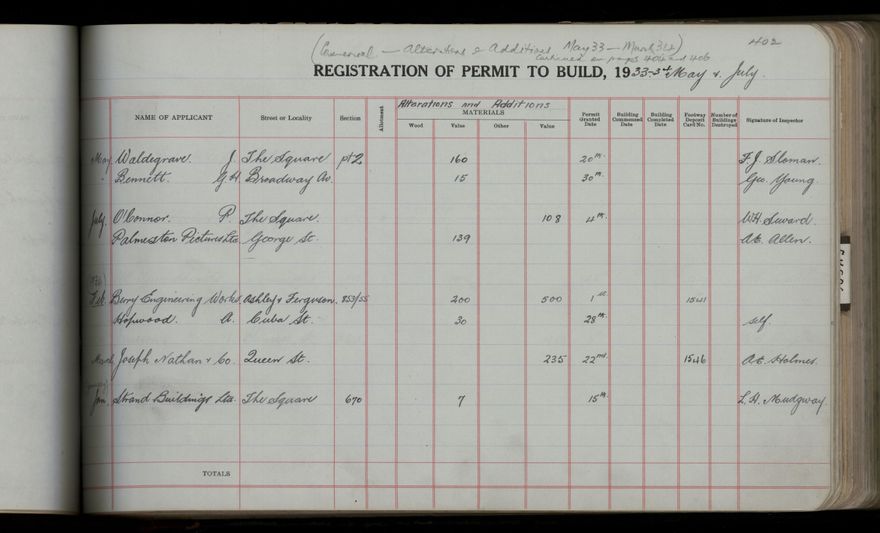 (Commercial - Alterations & Additions May 33 - March 34)
402
continued on pages 404 and 406
REGISTRATION OF PERMIT TO BUILD, 1933-34 May & July.
Alterations and Additions
NAME OF APPLICANT Street or Locality Section Allotment MATERIALS Permit Granted Date Building Commenced Date Building Completed Date Footway Deposit Card No. Number of Buildings Destroyed Signature of Inspector
Wood Value Other Value
May Waldegrave. J. The Square pt 2 160 20th. F. J. Sloman.
" Bennett. G H Broadway Av. 15 30th. Geo. Young.
July. O'Connor. P. The Square. 108 4th. W.H. Seward.
Palmerston Pictures Ltd George St. 139 A.E. Allen.
Feb. Berry Engineering Works. Ashley & Ferguson. 853/55 200 500 1st. 1541
Hopwood. A. Cuba St. 30 28th. self.
March Joseph Nathan & Co. Queen St. 235 22nd. 1546 A.E. Holmes.
Jan. Strand Buildings Ltd. The Square 670 7 15th. L. H. Mudgway.
TOTALS